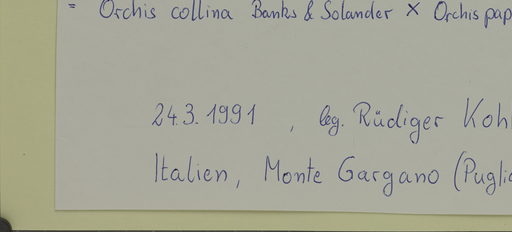 = Orchis collina Banks & Solander × Orchis pap
24.3.1991 , leg. Rüdiger Koh
Italien, Monte Gargano (Puglia